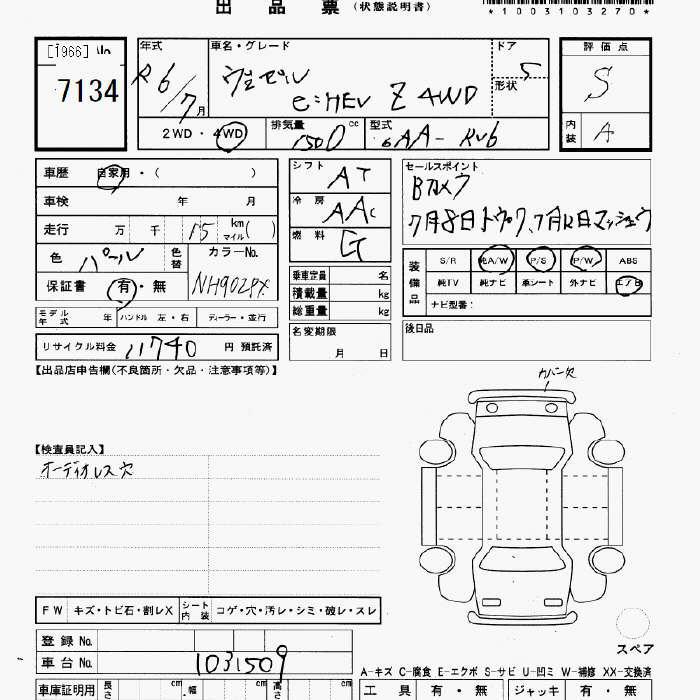 出品票 (状態説明書)
*1003103270*
[1966]
7134
年式 R6/7月
車名・グレード ヴェゼル e:HEV Z 4WD
ドア 5
形状
評価点 S
内装 A
2WD・4WD
排気量 1500 cc
型式 6AA-RV6
車歴 自家用・( )
車検 年 月
走行 万 千 15 km マイル( )
色 パール 色替
カラーNo. NH902PX
保証書 有・無
モデル年式 年
ハンドル 左・右
ディーラー・並行
リサイクル料金 11740 円 預託済
シフト AT
冷房 AAC
燃料 G
乗車定員 名
積載量 kg
総重量 kg
名変期限
月 日
セールスポイント
Bカメラ
7月8日トウロク、7月12日マッショウ
装備品
S/R 純A/W P/S P/W ABS
純TV 純ナビ 革シート 外ナビ エアB
ナビ型番：
後日品
【出品店申告欄(不良箇所・欠品・注意事項等)】
カバー欠
【検査員記入】
オーディオレス穴
FW キズ・トビ石・割レX
シート内装 コゲ・穴・汚レ・シミ・破レ・スレ
スペア
登録No.
車台No. 1031509
A-キズ C-腐食 E-エクボ S-サビ U-凹ミ W-補修 XX-交換済
車庫証明用 長さ cm 幅 cm 高さ cm
工具 有・無 ジャッキ 有・無